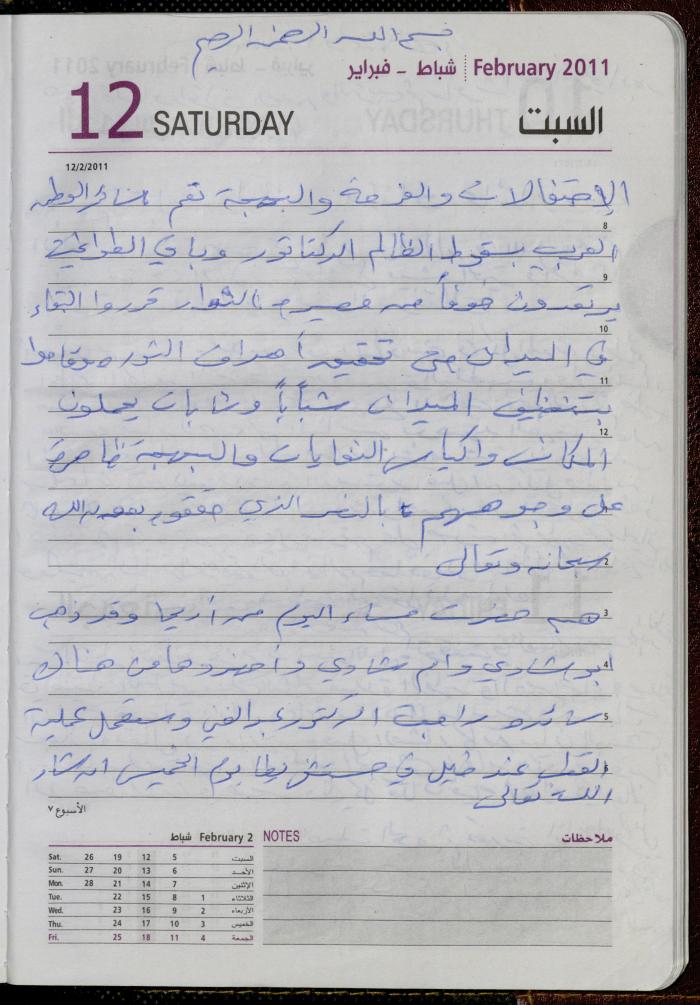 بسم الله الرحمن الرحيم
شباط - فبراير February 2011
12 SATURDAY السبت
12/2/2011
الإحتفالات والفرحة والبهجة تعم سائر الوطن
8
العربي بسقوط الظالم الدكتاتور وباقي الطواغيت
9
يرتعدون خوفاً من مصيرهم الثوار قرروا البقاء
10
في الميدان حتى تحقيق أهداف الثوره وقاموا
11
بتنظيف الميدان شباباً وشابات يحملون
12
المكانس وأكياس النفايات والبهجة ظاهرة
على وجوههم بالنصر الذي حققوه بعون الله
2
سبحانه وتعالى
3
هبه حضرت مساء اليوم من أريحا وقد ذهب
4
أبو شادي وأم شادي وأحضروها من هناك
5
الدكتور عبد الغني وستعمل عملية
6
القلب عند خليل في مستشفى يطا يوم الخميس ان شاء
الله تعالى
الأسبوع ٧
شباط February 2
Sat. 26 19 12 5 السبت
Sun. 27 20 13 6 الأحد
Mon. 28 21 14 7 الإثنين
Tue. 22 15 8 1 الثلاثاء
Wed. 23 16 9 2 الأربعاء
Thu. 24 17 10 3 الخميس
Fri. 25 18 11 4 الجمعة
NOTES ملاحظات